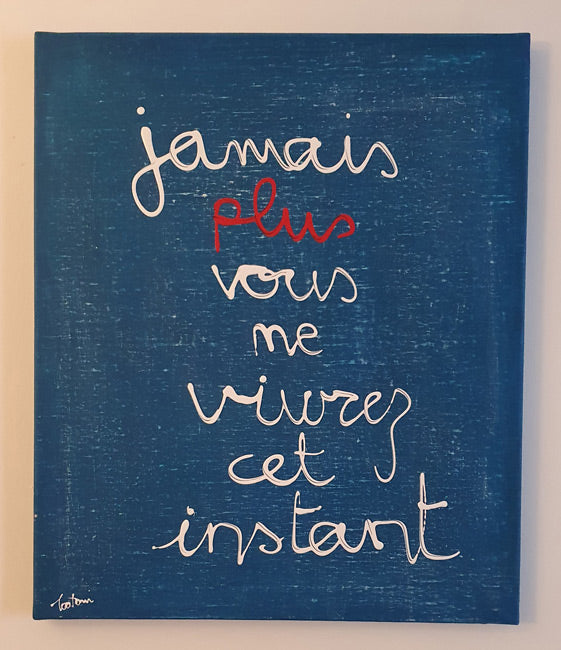 jamais
plus
vous
ne
vivrez
cet
instant